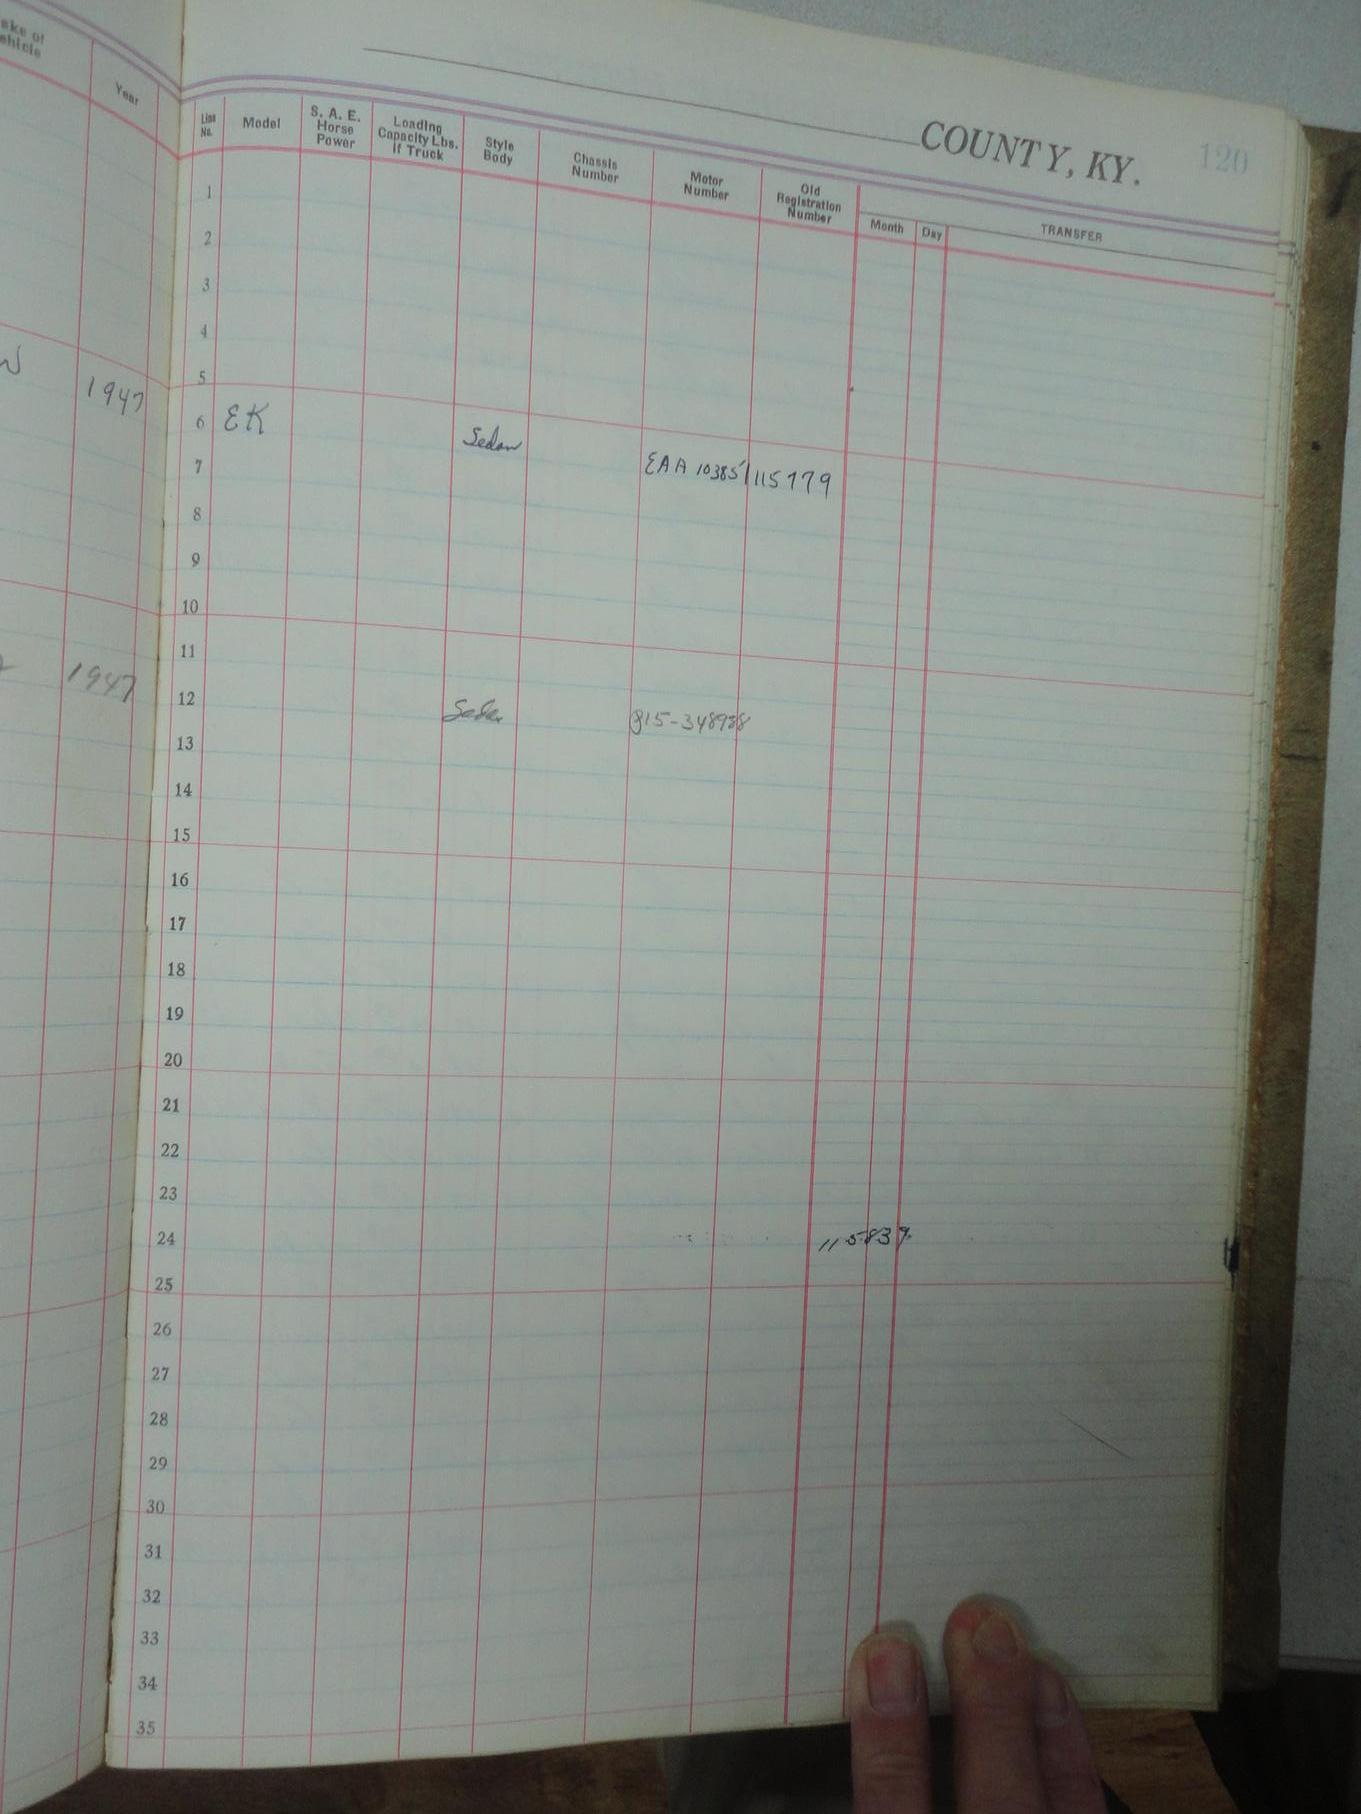 COUNTY, KY. 120
Year
Line No. Model S. A. E. Horse Power Loading Capacity Lbs. if Truck Style Body Chassis Number Motor Number Old Registration Number Month Day TRANSFER
1
2
3
4
5
1947
6 EK Sedan
7 EAA 10385 115779
8
9
10
11
1947
12 Sedan 815-348988
13
14
15
16
17
18
19
20
21
22
23
24 115839
25
26
27
28
29
30
31
32
33
34
35